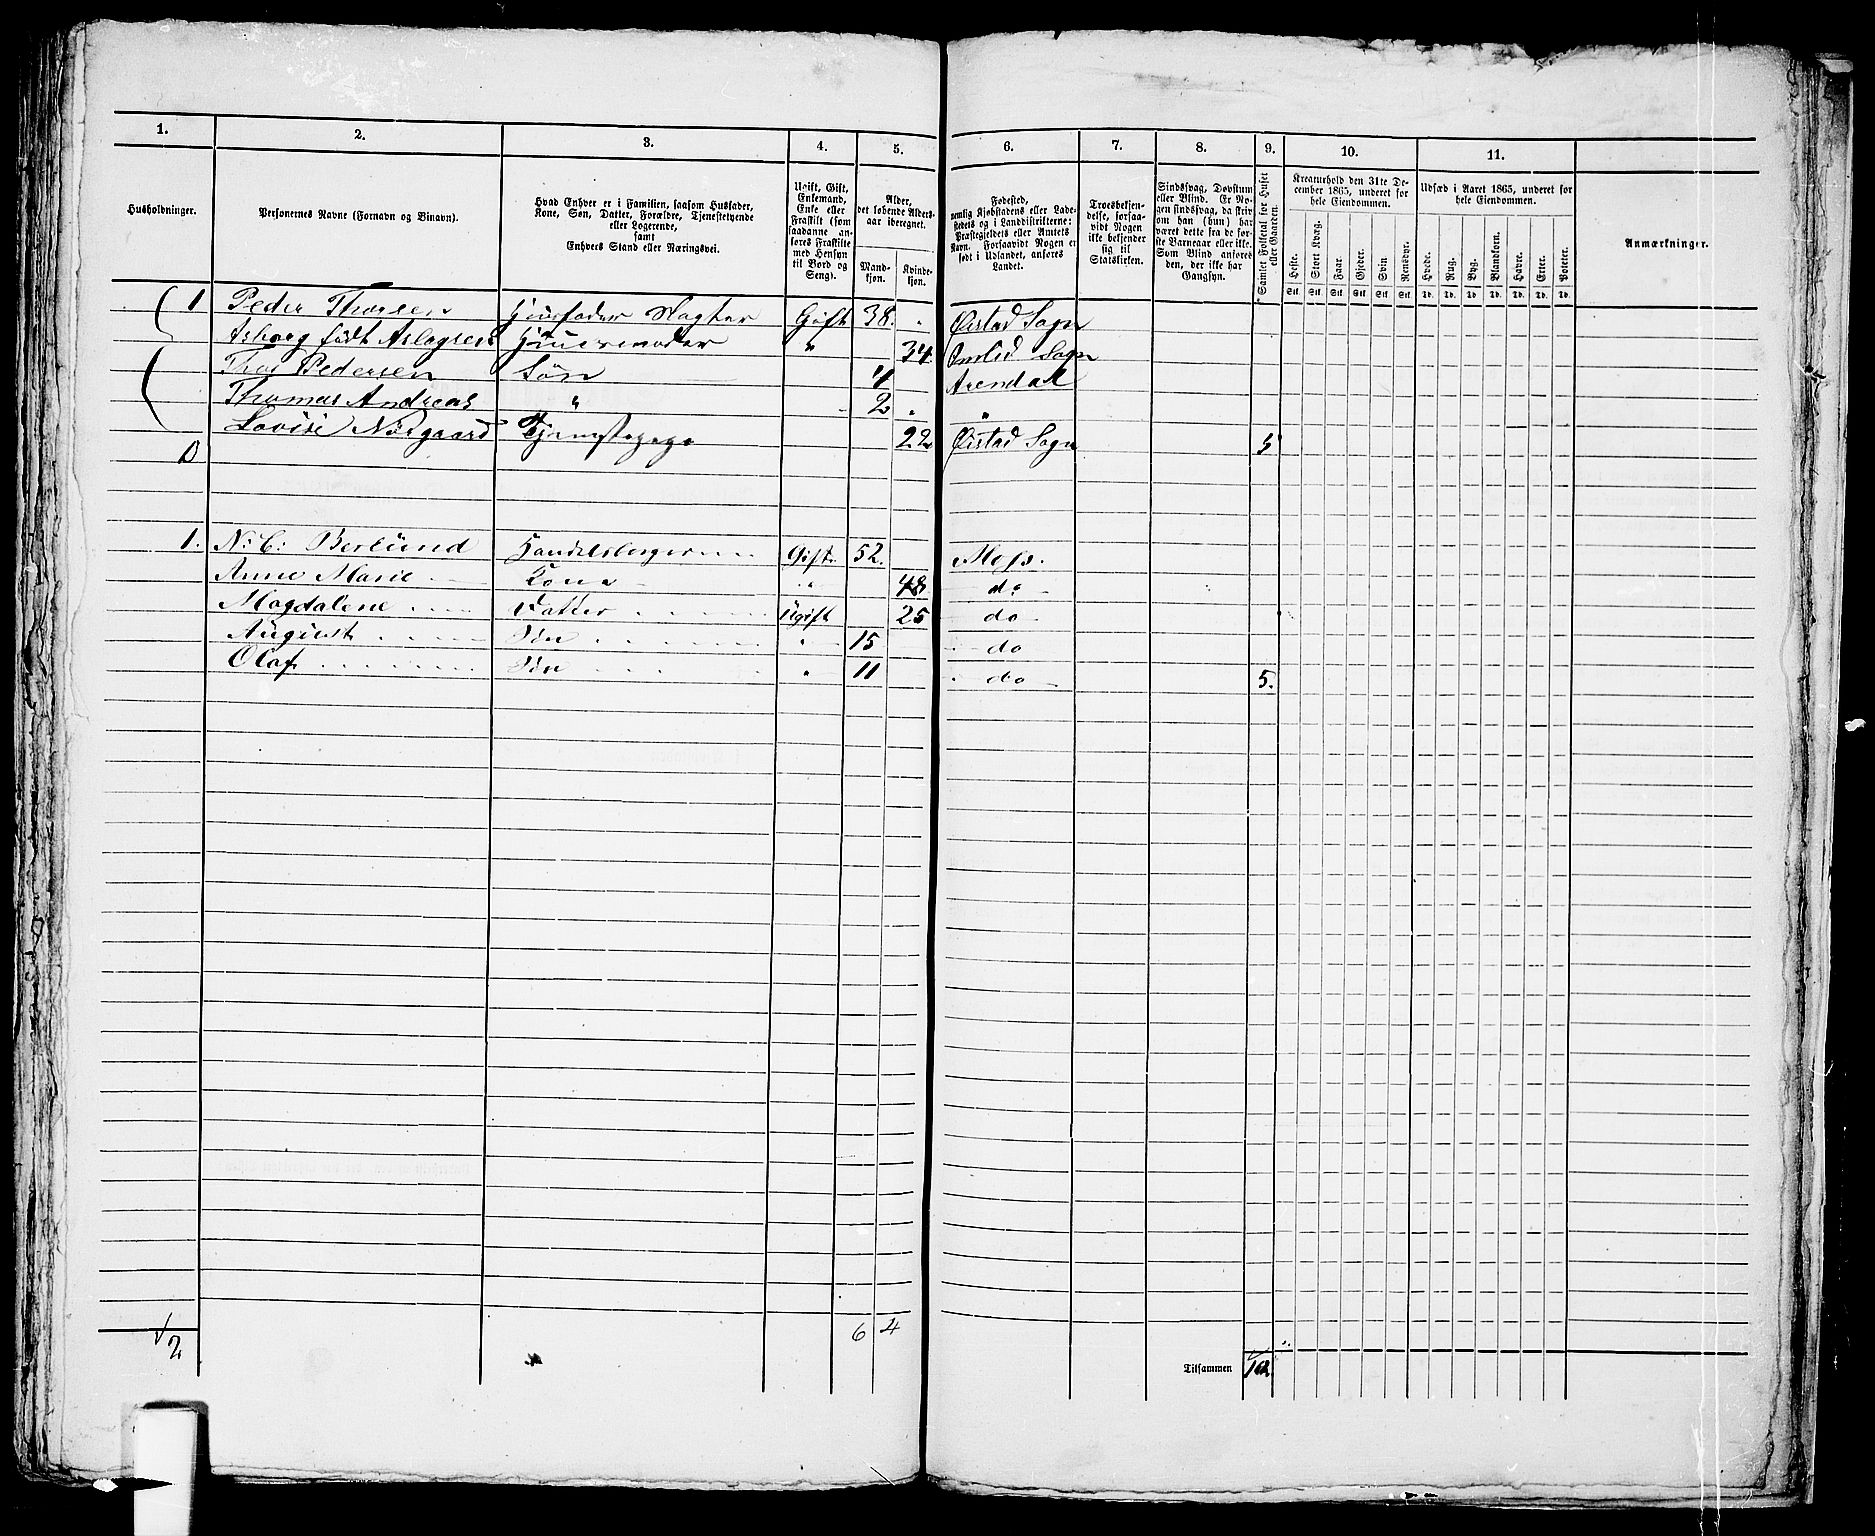 1. 2. 3. 4. 5. 6. 7. 8. 9. 10. 11.
Husholdninger.
Personernes Navne (Fornavn og Binavn).
Hvad Enhver er i Familien, saasom Husfader, Kone, Søn, Datter, Forældre, Tjenestetyende eller Logerende, samt Enhvers Stand eller Næringsvei.
Ugift, Gift, Enkemand, Enke eller Fraskilt (som saadanne anføres Fraskilte med Hensyn til Bord og Seng).
Alder, det løbende Alders-aar iberegnet.
Mand-kjøn. Kvinde-kjøn.
Fødested, nemlig Kjøbstadens eller Ladestedets og i Landdistrikterne: Præstegjeldets eller Amtets Navn. Forsaavidt Nogen er født i Udlandet, anføres Landet.
Troesbekjendelse, forsaavidt Nogen ikke bekjender sig til Statskirken.
Sindssvag, Døvstum eller Blind. Er Nogen sindssvag, da skrives om han (hun) har været dette fra de første Barneaar eller ikke. Som Blind anføres den, der ikke har Gangsyn.
Samlet Folketal for Huset eller Gaarden.
Kreaturhold den 31te December 1865, underet for hele Eiendommen.
Heste. Stort Kvæg. Faar. Gjeder. Svin. Rensdyr.
Stk. Stk. Stk. Stk. Stk. Stk.
Udsæd i Aaret 1865, underet for hele Eiendommen.
Hvede. Rug. Byg. Blandkorn. Havre. Erter. Poteter.
Td. Td. Td. Td. Td. Td. Td.
Anmærkninger.
1 Peder Thorsen Huusfader Slagter Gift 38. Øistad Sogn
Asborg født Aslagsen Huusmoder " 34 Omlid Sogn
Thor Pedersen Søn 4 Arendal
Thomas Andreas " 2 "
Lovise Nørgaard Tjenstepige 22 Øistad Sogn 5
1. N: C: Berlund Handelsborger Gift 52. Moss.
Anne Marie Kone " 48 do
Magdalene Datter Ugift 25 do
August Søn " 15 do
Olaf Søn " 11 do 5.
2 6 4
Tilsammen 10